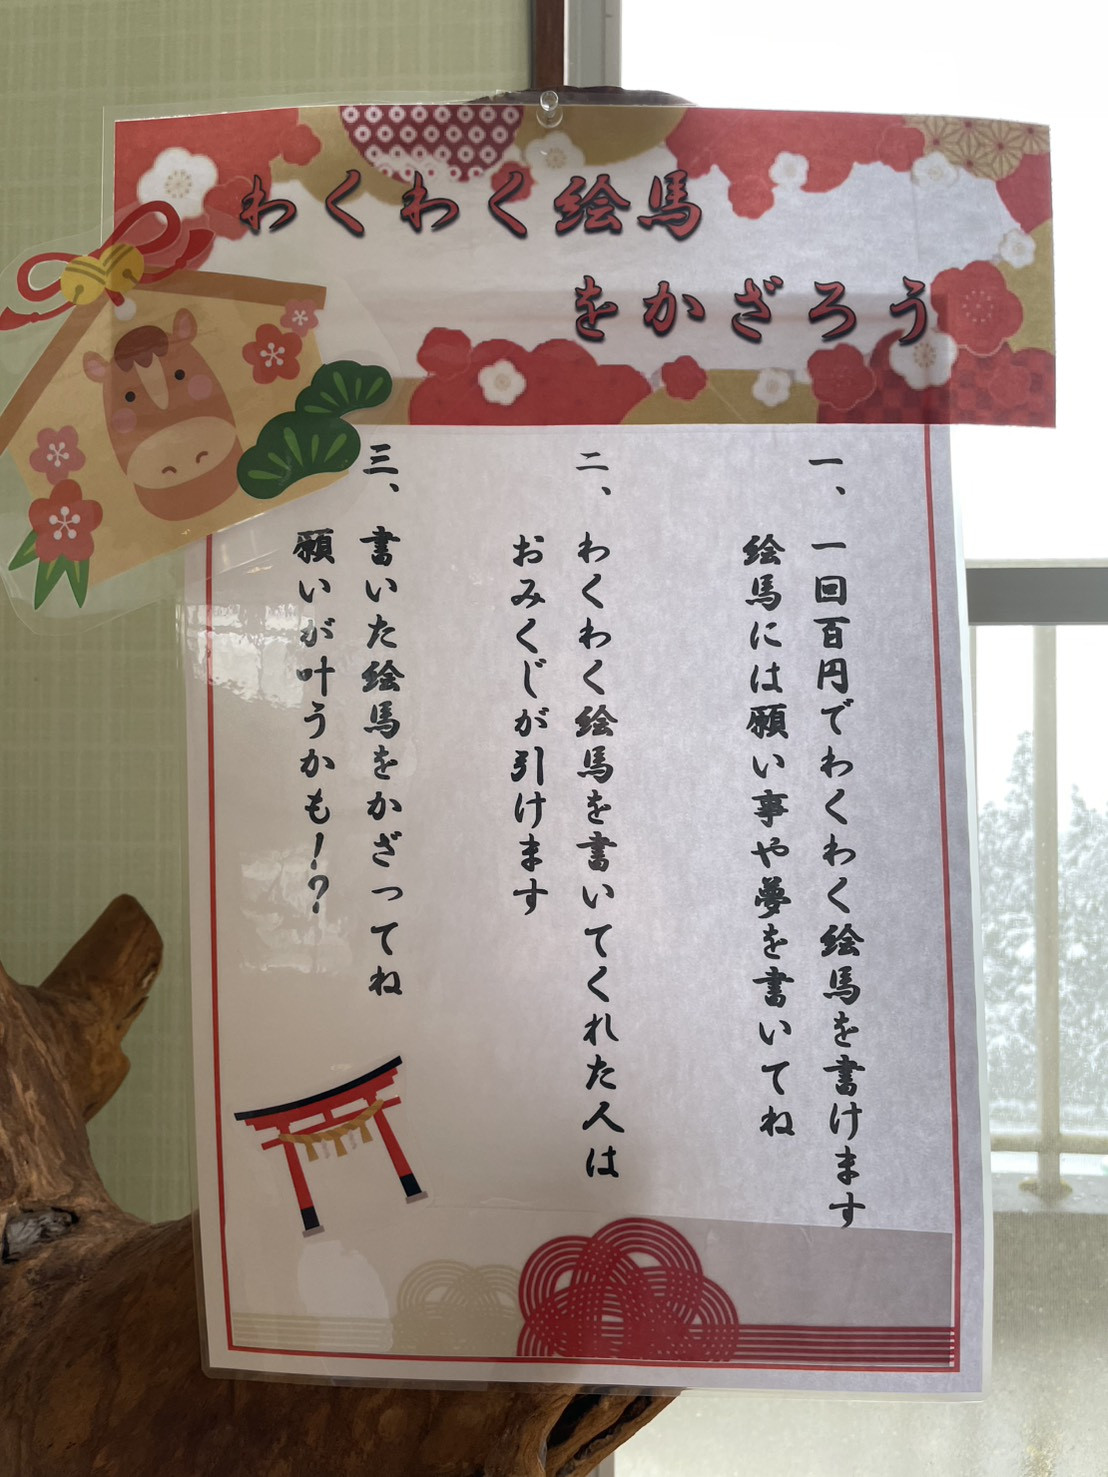 わくわく絵馬
をかざろう
一、一回百円でわくわく絵馬を書けます
絵馬には願い事や夢を書いてね
二、わくわく絵馬を書いてくれた人は
おみくじが引けます
三、書いた絵馬をかざってね
願いが叶うかも!?